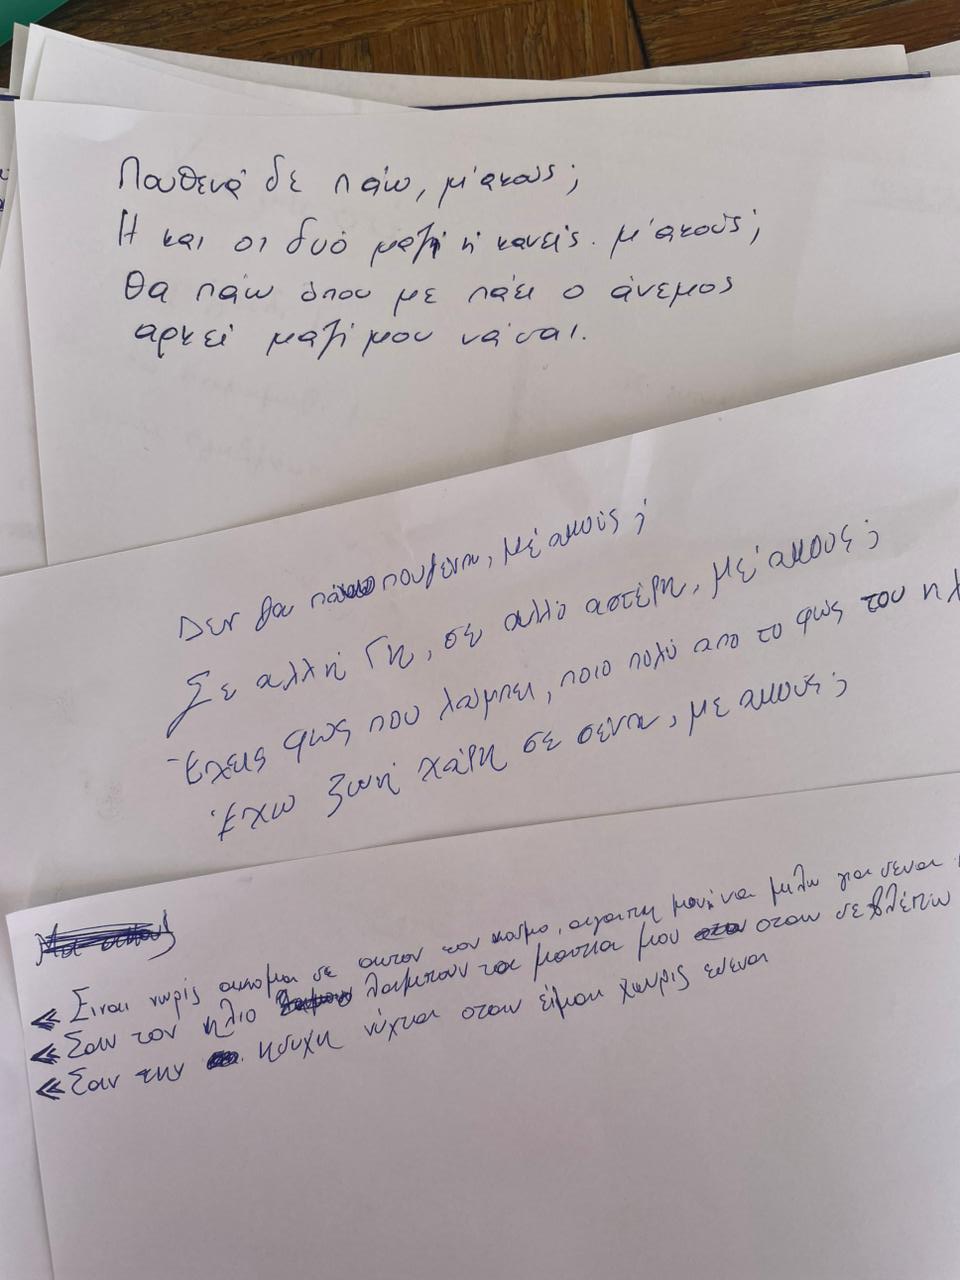 Πουθενά δε πάω, μ' ακούς;
Ή και οι δυό μαζί ή κανείς. μ' ακούς;
Θα πάω όπου με πάει ο άνεμος
αρκεί μαζί μου νά 'σαι.
Δεν θα πάω πουθενα, με' ακούς;
Σε αλλή Γη, σε αλλο αστέρι, με' ακους;
Έχεις φως που λάμπει, ποιο πολύ απο το φως του
Έχω ζωή χάρη σε σενα, με ακους;
« Ειναι νωρίς ακόμα σε αυτον τον κοσμο, αγαπη μου, να μιλω για σενα
« Σαν τον ηλιο λαμπουν τα ματια μου οταν σε βλέπω
« Σαν την ησυχη νύχτα οταν είμαι χωρίς εσενα